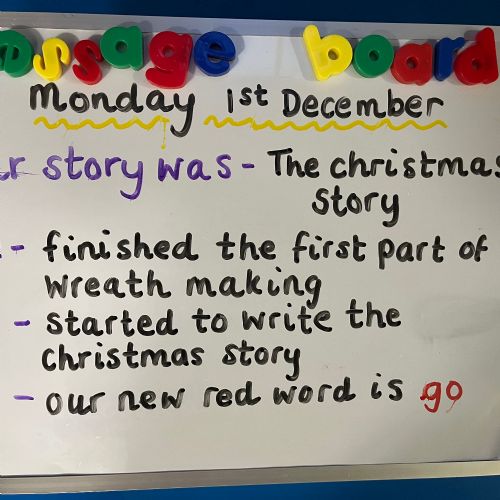 essage board
Monday 1st December
r story was - The christmas
story
- finished the first part of
wreath making
- started to write the
christmas story
- our new red word is go